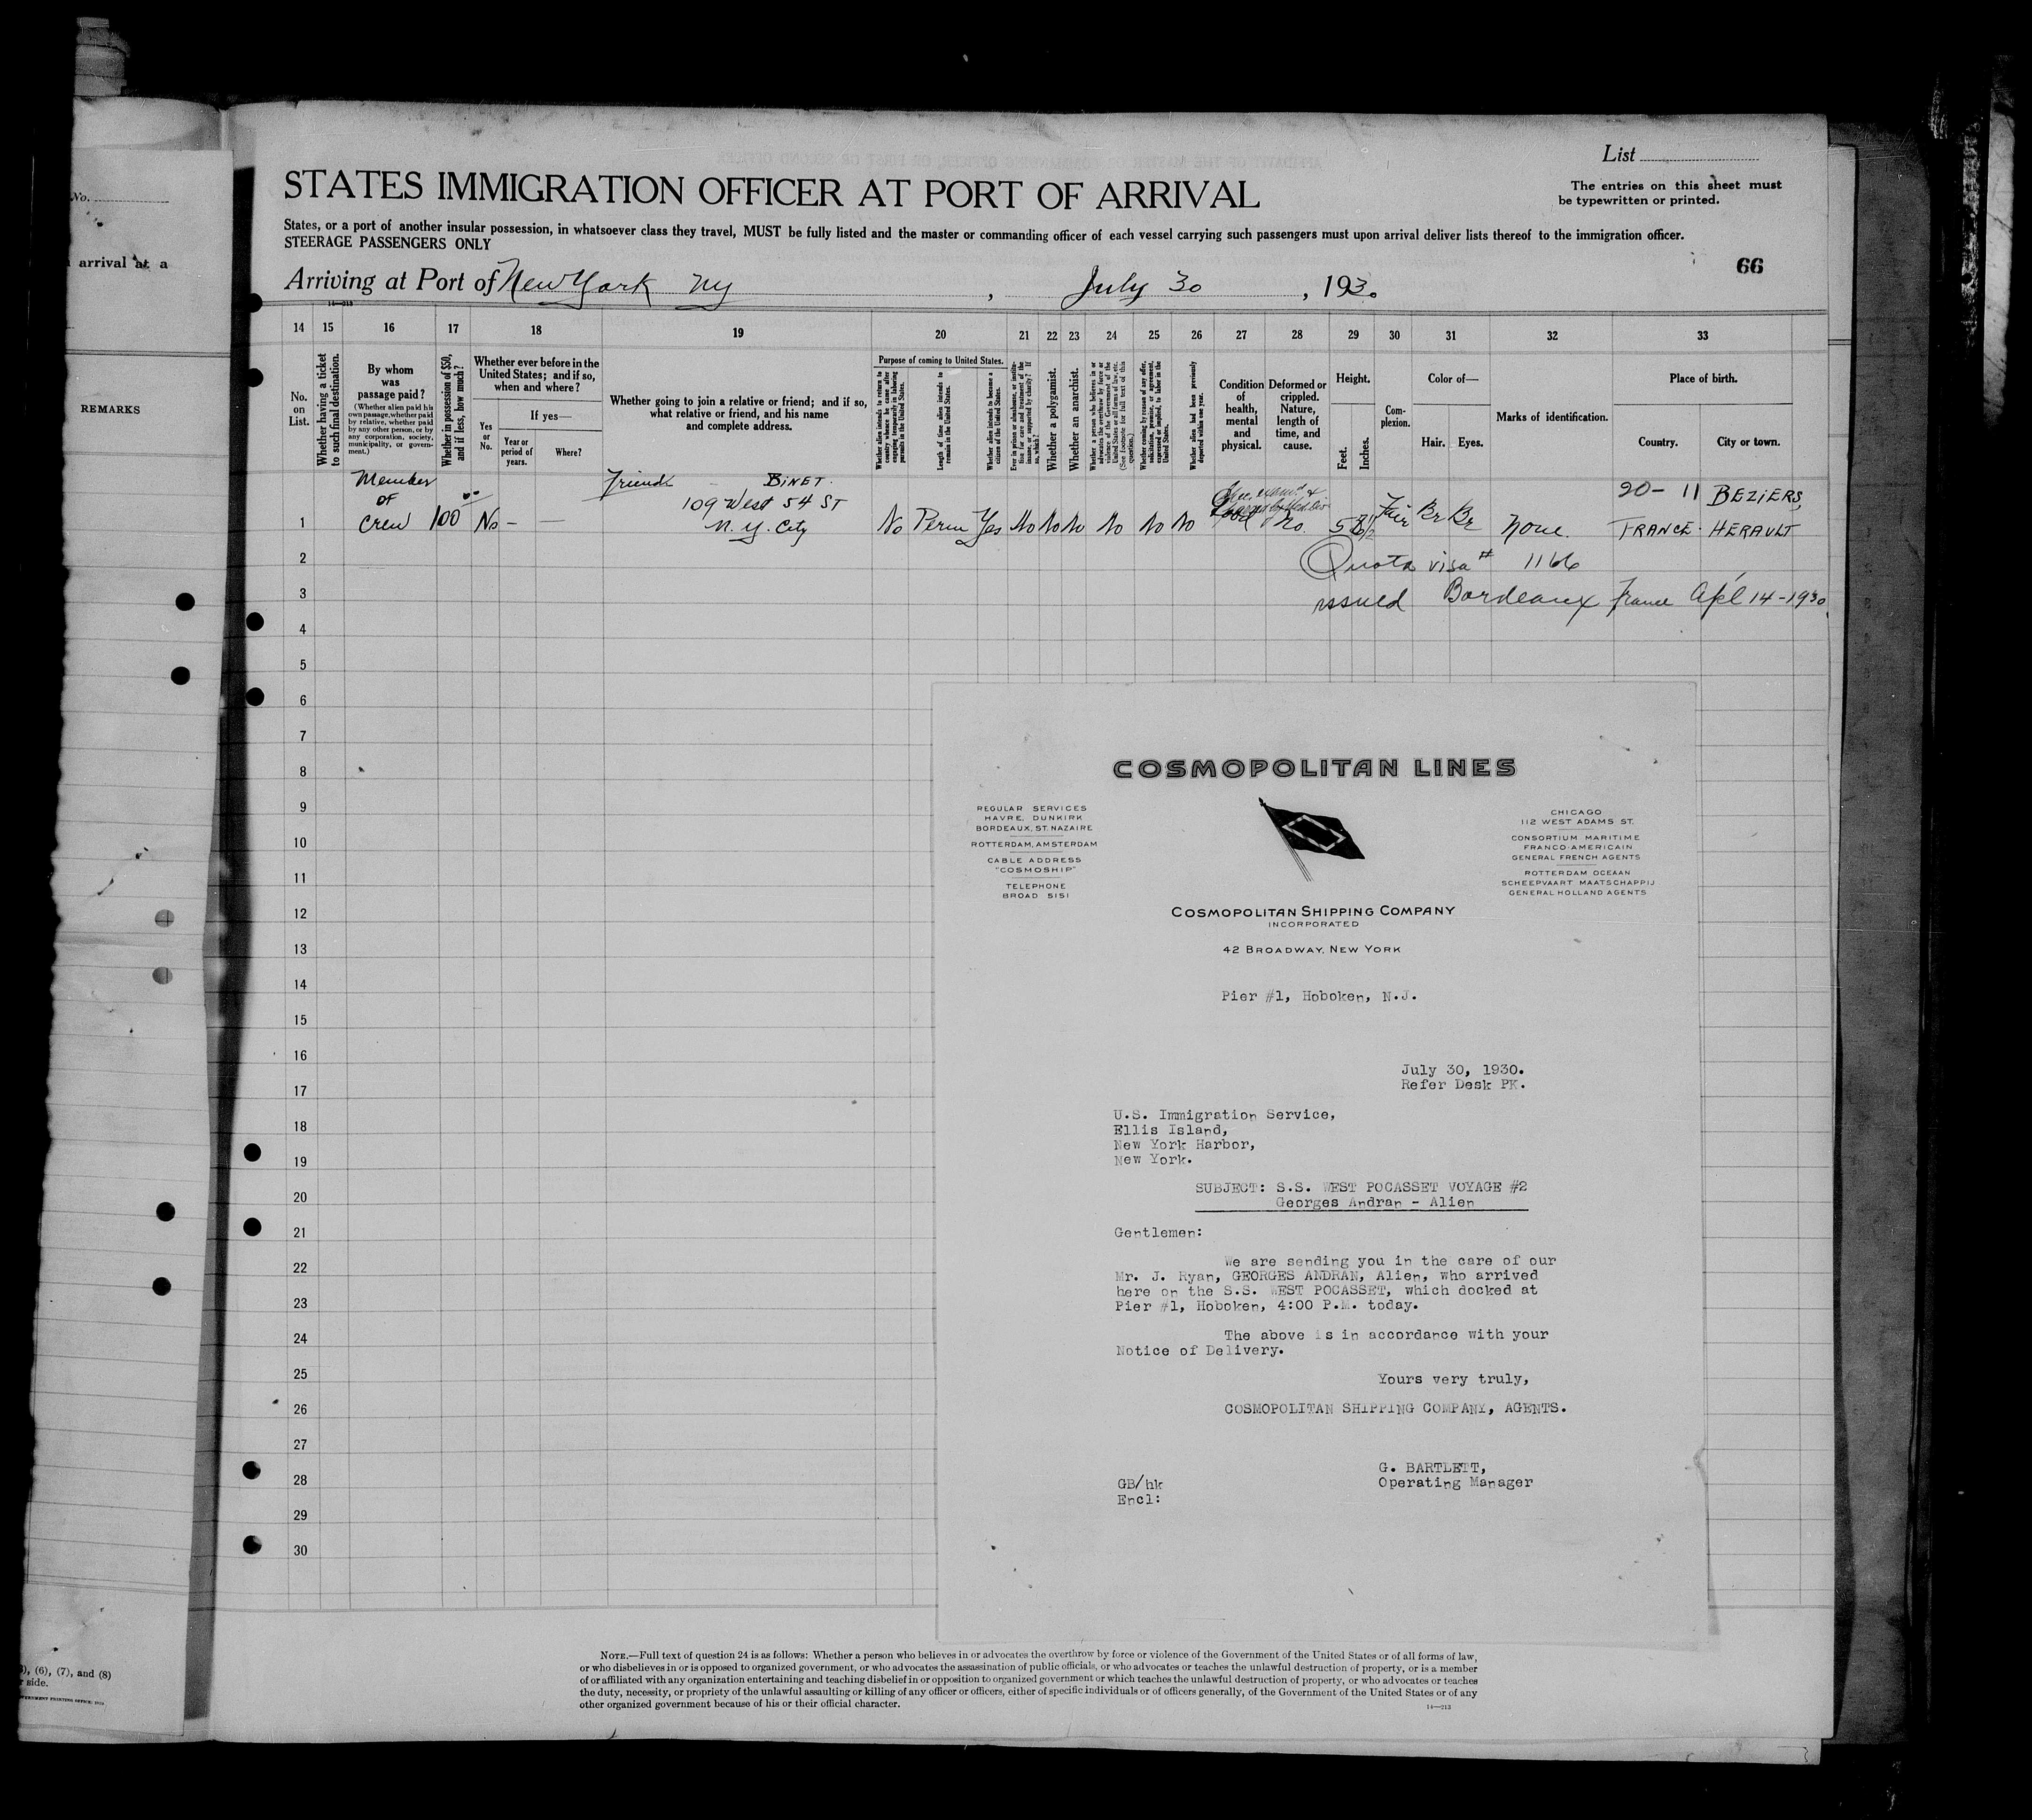 No.
arrival at a
REMARKS
), (6), (7), and (8)
side.
List
The entries on this sheet must
be typewritten or printed.
STATES IMMIGRATION OFFICER AT PORT OF ARRIVAL
States, or a port of another insular possession, in whatsoever class they travel, MUST be fully listed and the master or commanding officer of each vessel carrying such passengers must upon arrival deliver lists thereof to the immigration officer.
STEERAGE PASSENGERS ONLY
66
Arriving at Port of New York NY, July 30, 1930
14—213
14 15 16 17 18 19 20 21 22 23 24 25 26 27 28 29 30 31 32 33
No. on List.
Whether having a ticket to such final destination.
By whom was passage paid?
(Whether alien paid his own passage, whether paid by relative, whether paid by any other person, or by any corporation, society, municipality, or government.)
Whether in possession of $50, and if less, how much?
Whether ever before in the United States; and if so, when and where?
Yes or No.
If yes—
Year or period of years.
Where?
Whether going to join a relative or friend; and if so, what relative or friend, and his name and complete address.
Purpose of coming to United States.
Whether alien intends to return to country whence he came after engaging temporarily in laboring pursuits in the United States.
Length of time alien intends to remain in the United States.
Whether alien intends to become a citizen of the United States.
Ever in prison or almshouse, or institution for care and treatment of the insane, or supported by charity? If so, which?
Whether a polygamist.
Whether an anarchist.
Whether a person who believes in or advocates the overthrow by force or violence of the Government of the United States or all forms of law, etc. (See footnote for full text of this question.)
Whether coming by reason of any offer, solicitation, promise, or agreement, expressed or implied, to labor in the United States.
Whether alien had been previously deported within one year.
Condition of health, mental and physical.
Deformed or crippled. Nature, length of time, and cause.
Height.
Feet.
Inches.
Complexion.
Color of—
Hair.
Eyes.
Marks of identification.
Place of birth.
Country.
City or town.
1 Member of Crew 100 00 No — — Friend - BINET. 109 West 54 ST N.Y. City No Perm Yes No No No No No No Good No. 5 Fair Br Br None. 20-11 FRANCE. BEZIERS, HERAULT
2 Quota visa # 1166
3 issued Bordeaux France Apl 14-1930
4
5
6
7
8
9
10
11
12
13
14
15
16
17
18
19
20
21
22
23
24
25
26
27
28
29
30
COSMOPOLITAN LINES
REGULAR SERVICES
HAVRE, DUNKIRK
BORDEAUX, ST. NAZAIRE
ROTTERDAM, AMSTERDAM
CABLE ADDRESS
"COSMOSHIP"
TELEPHONE
BROAD 5151
CHICAGO
112 WEST ADAMS ST.
CONSORTIUM MARITIME
FRANCO-AMERICAIN
GENERAL FRENCH AGENTS
ROTTERDAM OCEAAN
SCHEEPVAART MAATSCHAPPIJ
GENERAL HOLLAND AGENTS
COSMOPOLITAN SHIPPING COMPANY
INCORPORATED
42 BROADWAY, NEW YORK
Pier #1, Hoboken, N.J.
July 30, 1930.
Refer Desk PK.
U.S. Immigration Service,
Ellis Island,
New York Harbor,
New York.
SUBJECT: S.S. WEST POCASSET VOYAGE #2
Georges Andran - Alien
Gentlemen:
We are sending you in the care of our
Mr. J. Ryan, GEORGES ANDRAN, Alien, who arrived
here on the S.S. WEST POCASSET, which docked at
Pier #1, Hoboken, 4:00 P.M. today.
The above is in accordance with your
Notice of Delivery.
Yours very truly,
COSMOPOLITAN SHIPPING COMPANY, AGENTS.
G. BARTLETT,
Operating Manager
GB/hk
Encl:
NOTE.—Full text of question 24 is as follows: Whether a person who believes in or advocates the overthrow by force or violence of the Government of the United States or of all forms of law,
or who disbelieves in or is opposed to organized government, or who advocates the assassination of public officials, or who advocates or teaches the unlawful destruction of property, or is a member
of or affiliated with any organization entertaining and teaching disbelief in or opposition to organized government or which teaches the unlawful destruction of property, or who advocates or teaches
the duty, necessity, or propriety of the unlawful assaulting or killing of any officer or officers, either of specific individuals or of officers generally, of the Government of the United States or of any
other organized government because of his or their official character.
14—213